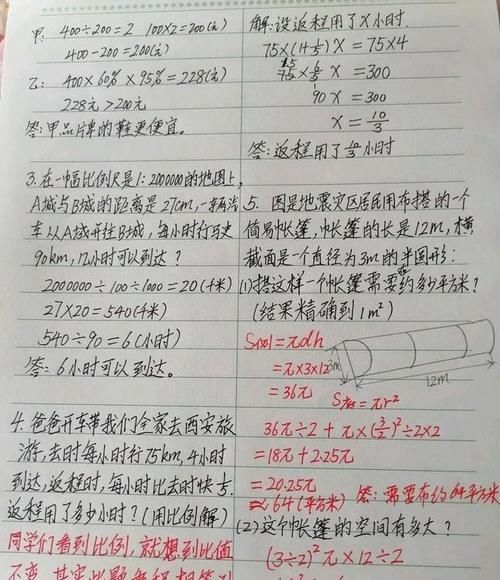 甲: 400÷200=2 100×2=200(元)
400-200=200(元)
乙: 400×60%×95%=228(元)
228元>200元
答:甲品牌的鞋更便宜。
3.在一幅比例尺是1:2000000的地图上,
A城与B城的距离是27cm,一辆汽
车从A城开往B城,每小时行驶
90km,几小时可以到达?
2000000÷100÷1000=20(千米)
27×20=540(千米)
540÷90=6(小时)
答:6小时可以到达。
4.爸爸开车带我们全家去西安旅
游,去时每小时行75km,4小时
到达,返程时,每小时比去时快1/5,
返程用了多少小时?(用比例解)
同学们看到比例,就想到比值
解:设返程用了X小时.
75×(1+1/5)X=75×4
75×6/5 X=300
90X=300
X=10/3
答:返程用了10/3小时
5.图是地震灾区居民用布搭的一个
简易帐篷,帐篷的长是12m,横
截面是一个直径为3m的半圆形:
(1)搭这样一个帐篷需要约多少平方米?
(结果精确到1m²)
S侧=πdh
=π×3×12
=36π
3m
12m
S底=πr²
36π÷2+π×(3/2)²÷2×2
=18π+2.25π
=20.25π
≈64(平方米) 答:需要布约64平方米
(2)这个帐篷的空间有多大?
(3÷2)²π×12÷2